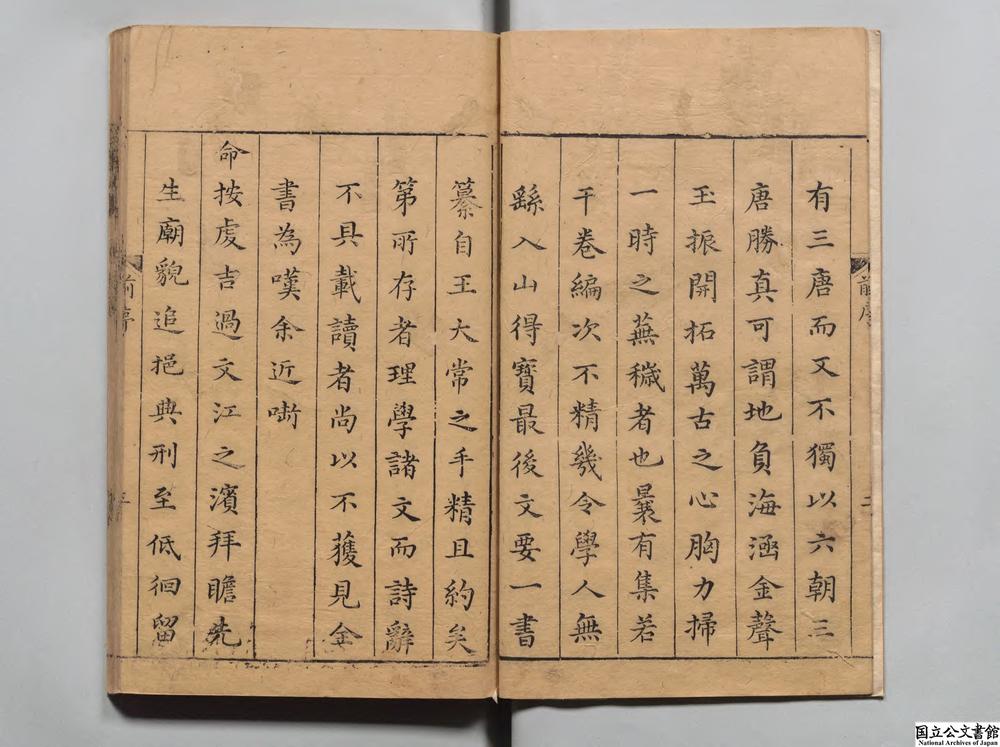 前序
二
有三唐而又不獨以六朝三
唐勝真可謂地負海涵金聲
玉振開拓萬古之心胸力掃
一時之蕪穢者也曩有集若
干卷編次不精幾令學人無
繇入山得寶最後文要一書
纂自王大常之手精且約矣
第所存者理學諸文而詩辭
不具載讀者尚以不獲見全
書為嘆余近啣
命按虔吉過文江之濱拜瞻先
生廟貌追挹典刑至低徊留
前序
国立公文書館
National Archives of Japan